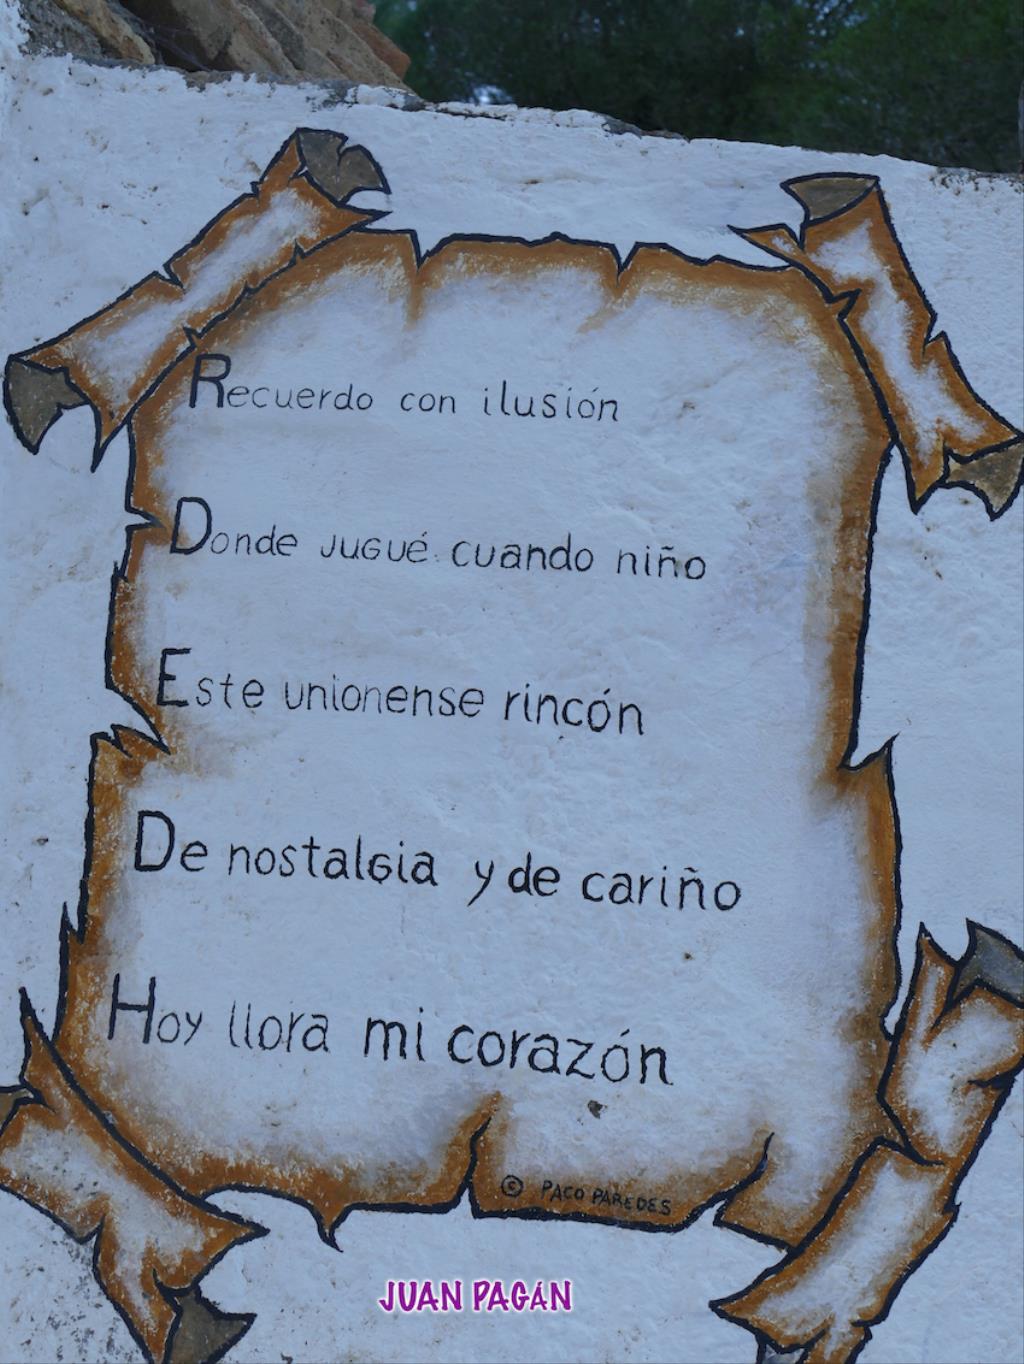 Recuerdo con ilusión
Donde jugué cuando niño
Este unionense rincón
De nostalgia y de cariño
Hoy llora mi corazón
© PACO PAREDES
JUAN PAGÁN